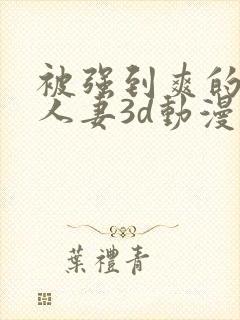 被强到爽的
人妻3d動漫
葉禮青